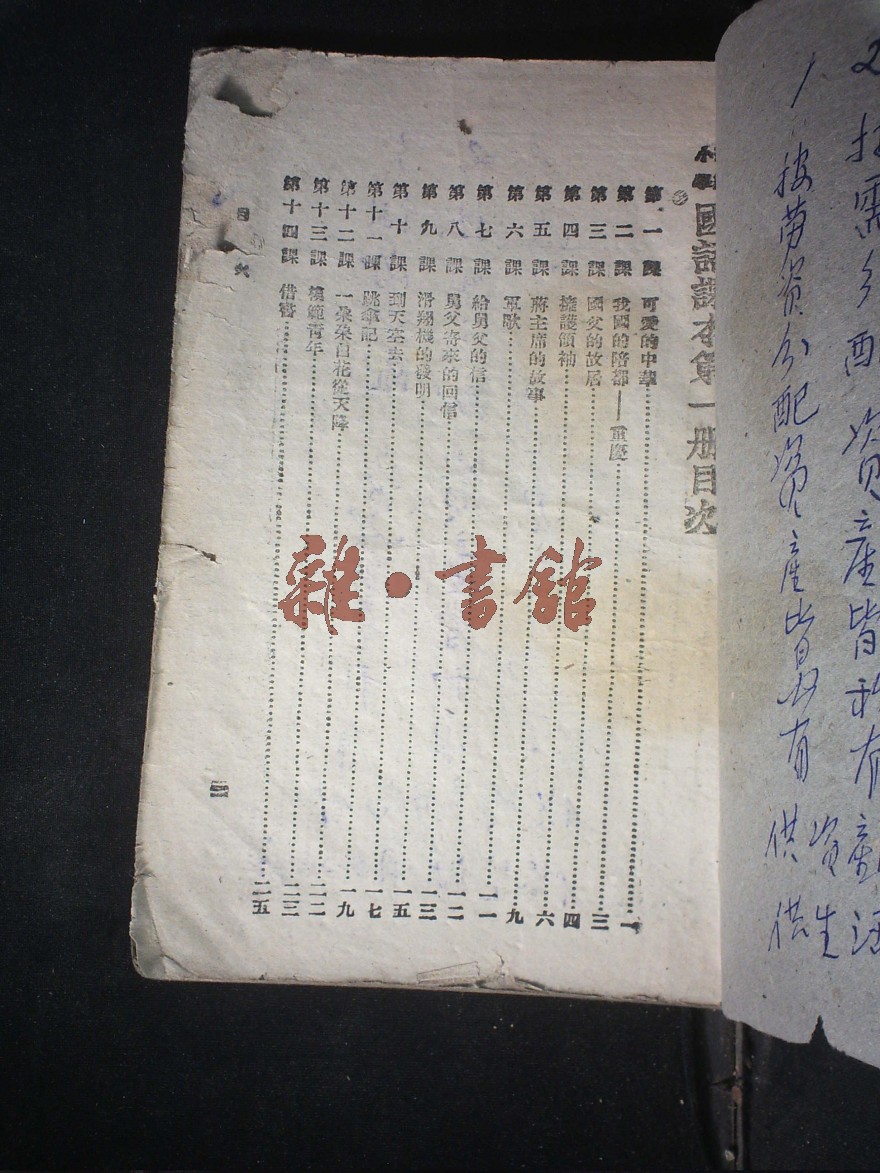 2 按需分配資產皆私有
1 按劳資分配資產皆有
供
供生
國語讀本第一册目次
第一課 可愛的中華 一
第二課 我國的陪都——重慶 三
第三課 國父的故居 四
第四課 擁護領袖 六
第五課 蔣主席的故事 九
第六課 軍歌 一一
第七課 給舅父的信 一二
第八課 舅父寄來的回信 一三
第九課 滑翔機的發明 一五
第十課 到天空去 一七
第十一課 跳傘記 一九
第十二課 一朵朵白花從天降 二二
第十三課 模範青年 二三
第十四課 借書 二五
目次
二
雜·書館